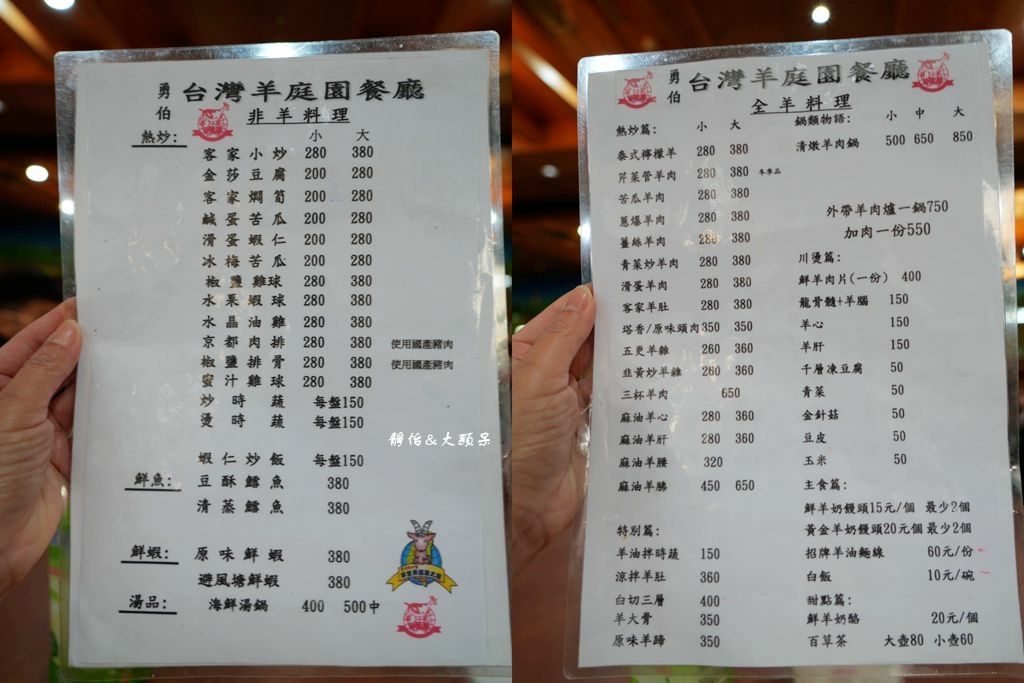 勇伯 台灣羊庭園餐廳
非羊料理
熱炒: 小 大
客家小炒 280 380
金莎豆腐 200 280
客家燜筍 200 280
鹹蛋苦瓜 200 280
滑蛋蝦仁 200 280
冰梅苦瓜 200 280
椒鹽雞球 280 380
水果蝦球 280 380
水晶油雞 280 380
京都肉排 280 380 使用國產豬肉
椒鹽排骨 280 380 使用國產豬肉
蜜汁雞球 280 380
炒時蔬 每盤150
燙時蔬 每盤150
蝦仁炒飯 每盤150
鮮魚: 豆酥鱈魚 380
清蒸鱈魚 380
鮮蝦: 原味鮮蝦 380
避風塘鮮蝦 380
湯品: 海鮮湯鍋 400 500中
靜怡&大顆呆
勇伯 台灣羊庭園餐廳
全羊料理
熱炒篇: 小 大
泰式檸檬羊 280 380
芹菜管羊肉 280 380 冬季品
苦瓜羊肉 280 380
蔥爆羊肉 280 380
薑絲羊肉 280 380
青菜炒羊肉 280 380
滑蛋羊肉 280 380
客家羊肚 280 380
塔香/原味頭肉 350 350
五更羊雜 260 360
韭黃炒羊雜 260 360
三杯羊肉 650
麻油羊心 280 360
麻油羊肝 280 360
麻油羊腰 320
麻油羊腩 450 650
特別篇:
羊油拌時蔬 150
涼拌羊肚 360
白切三層 400
羊大骨 350
原味羊蹄 350
鍋類物語: 小 中 大
清燉羊肉鍋 500 650 850
外帶羊肉爐一鍋750
加肉一份550
川燙篇:
鮮羊肉片(一份) 400
龍骨髓+羊腦 150
羊心 150
羊肝 150
千層凍豆腐 50
青菜 50
金針菇 50
豆皮 50
玉米 50
主食篇:
鮮羊奶饅頭15元/個 最少2個
黃金羊奶饅頭20元個 最少2個
招牌羊油麵線 60元/份
白飯 10元/碗
甜點篇:
鮮羊奶酪 20元/個
百草茶 大壺80 小壺60